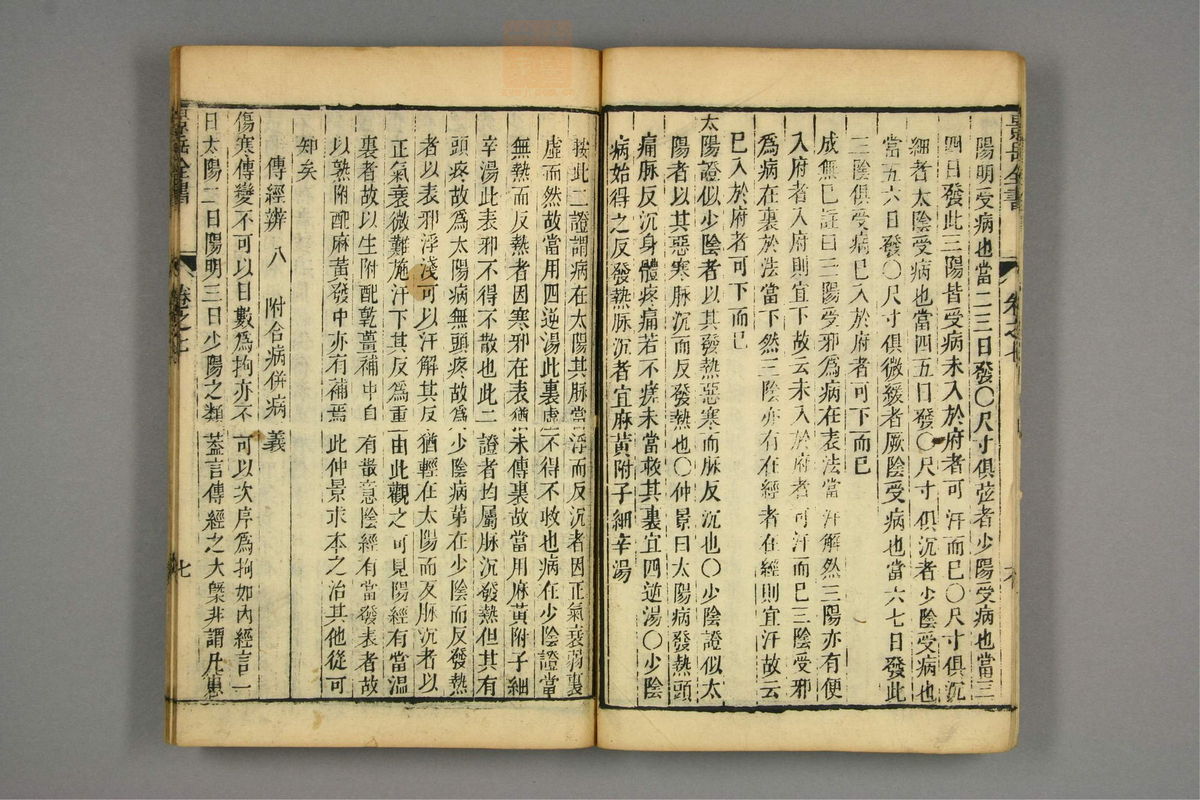 陽明受病也當二三日發〇尺寸俱弦者少陽受病也當三
四日發此三陽皆受病未入於府者可汗而已〇尺寸俱沉
細者太陰受病也當四五日發〇尺寸俱沉者少陰受病也
當五六日發〇尺寸俱微緩者厥陰受病也當六七日發此
三陰俱受病已入於府者可下而已
成無已註曰三陽受邪爲病在表法當汗解然三陽亦有便
入府者入府則宜下故云未入於府者可汗而已三陰受邪
爲病在裏於法當下然三陰亦有在經者在經則宜汗故云
已入於府者可下而已
太陽證似少陰者以其發熱惡寒而脉反沉也〇少陰證似太
陽者以其惡寒脉沉而反發熱也〇仲景曰太陽病發熱頭
痛脉反沉身體疼痛若不瘥未當救其裏宜四逆湯〇少陰
病始得之反發熱脉沉者宜麻黃附子細辛湯
景岳全書
卷之七
按此二證謂病在太陽其脉當浮而反沉者因正氣衰弱裏
虛而然故當用四逆湯此裏虛不得不收也病在少陰證當
無熱而反熱者因寒邪在表猶未傳裏故當用麻黃附子細
辛湯此表邪不得不散也此二證者均屬脉沉發熱但其有
頭疼故爲太陽病無頭疼故爲少陰病第在少陰而反發熱
者以表邪浮淺可以汗解其反猶輕在太陽而反脉沉者以
正氣衰微難施汗下其反爲重由此觀之可見陽經有當溫
裏者故以生附配乾薑補中自有散意陰經有當發表者故
以熟附配麻黃發中亦有補焉此仲景求本之治其他從可
知矣
傳經辨 八 附合病併病義
傷寒傳變不可以日數爲拘亦不可以次序爲拘如內經言一
日太陽二日陽明三日少陽之類葢言傳經之大槩非謂凡患
景岳全書
卷之七
七